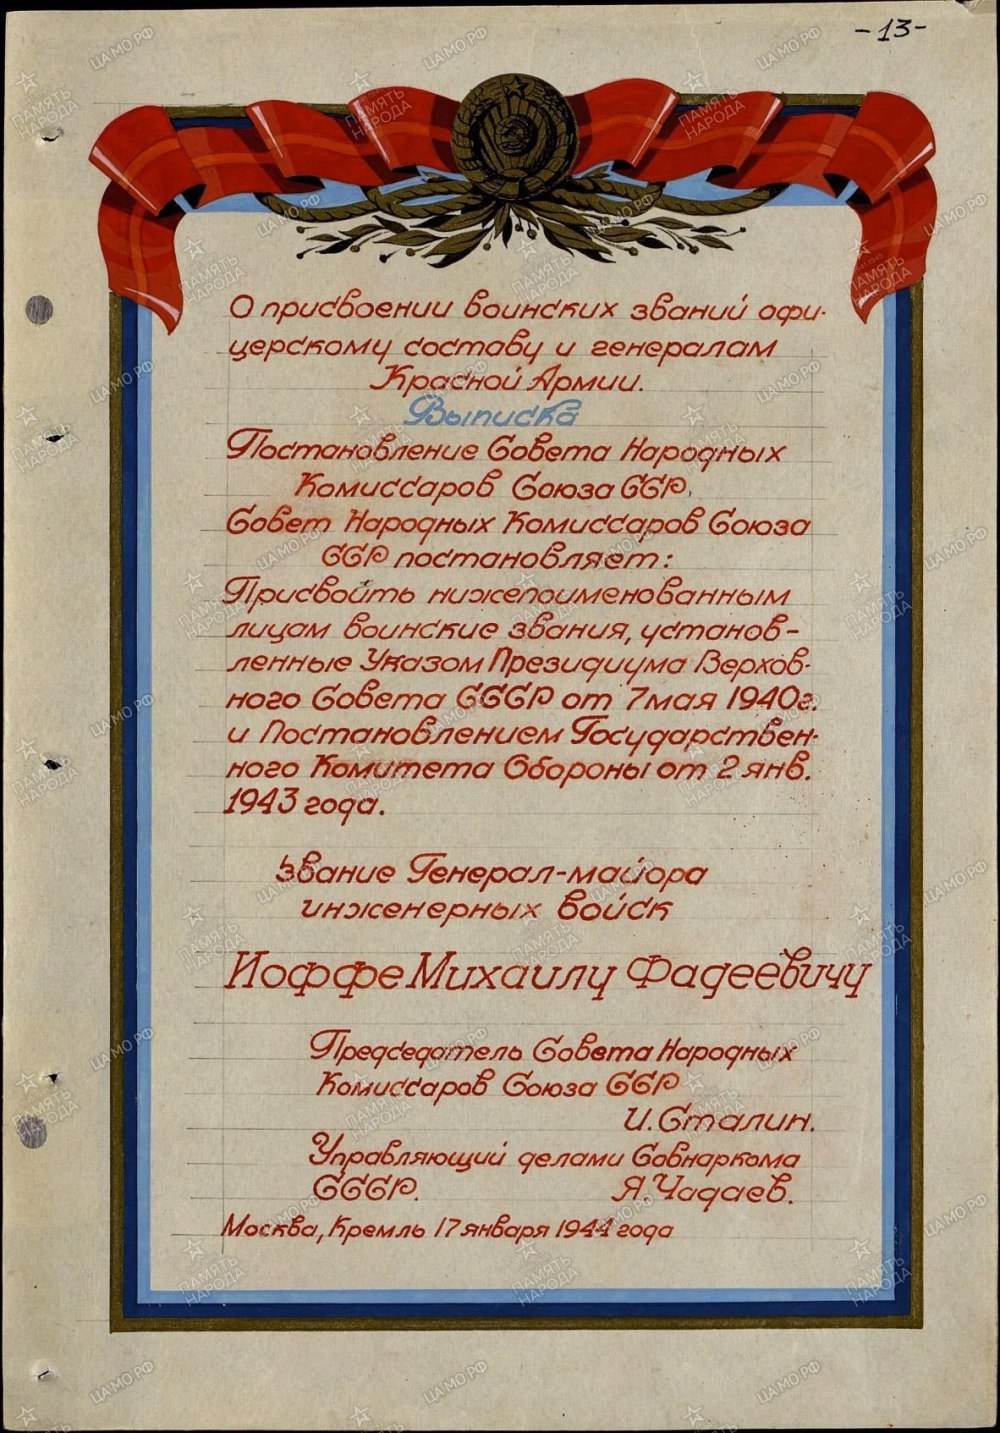 -13-
О присвоении воинских званий офи-
церскому составу и генералам
Красной Армии.
Выписка
Постановление Совета Народных
Комиссаров Союза ССР.
Совет Народных Комиссаров Союза
ССР постановляет:
Присвоить нижепоименованным
лицам воинские звания, установ-
ленные Указом Президиума Верхов-
ного Совета СССР от 7 мая 1940г.
и Постановлением Государствен-
ного Комитета Обороны от 2 янв.
1943 года.
звание Генерал-майора
инженерных войск
Иоффе Михаилу Фадеевичу
Председатель Совета Народных
Комиссаров Союза ССР
И. Сталин.
Управляющий делами Совнаркома
СССР. Я. Чадаев.
Москва, Кремль 17 января 1944 года
ПАМЯТЬ НАРОДА
ЦАМО РФ